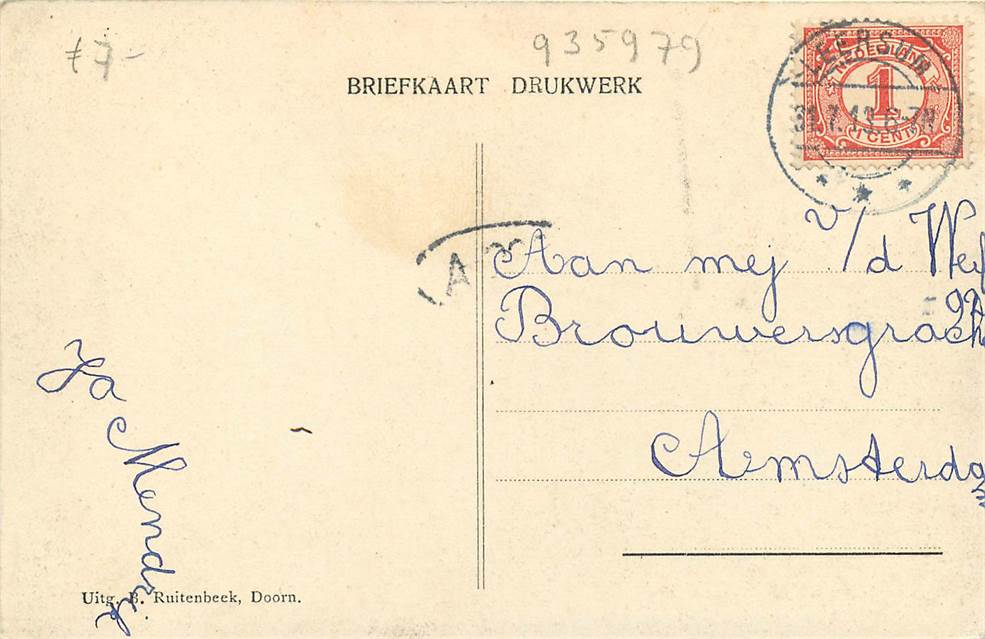 f 7-
935979
BRIEFKAART DRUKWERK
LEERSUM
31.7.13.6-7N
NEDERLAND
1
1 CENT
A
Aan mej v/d Wef
Brouwersgracht
92
Amsterdam
Ja Mendrik
Uitg. B. Ruitenbeek, Doorn.